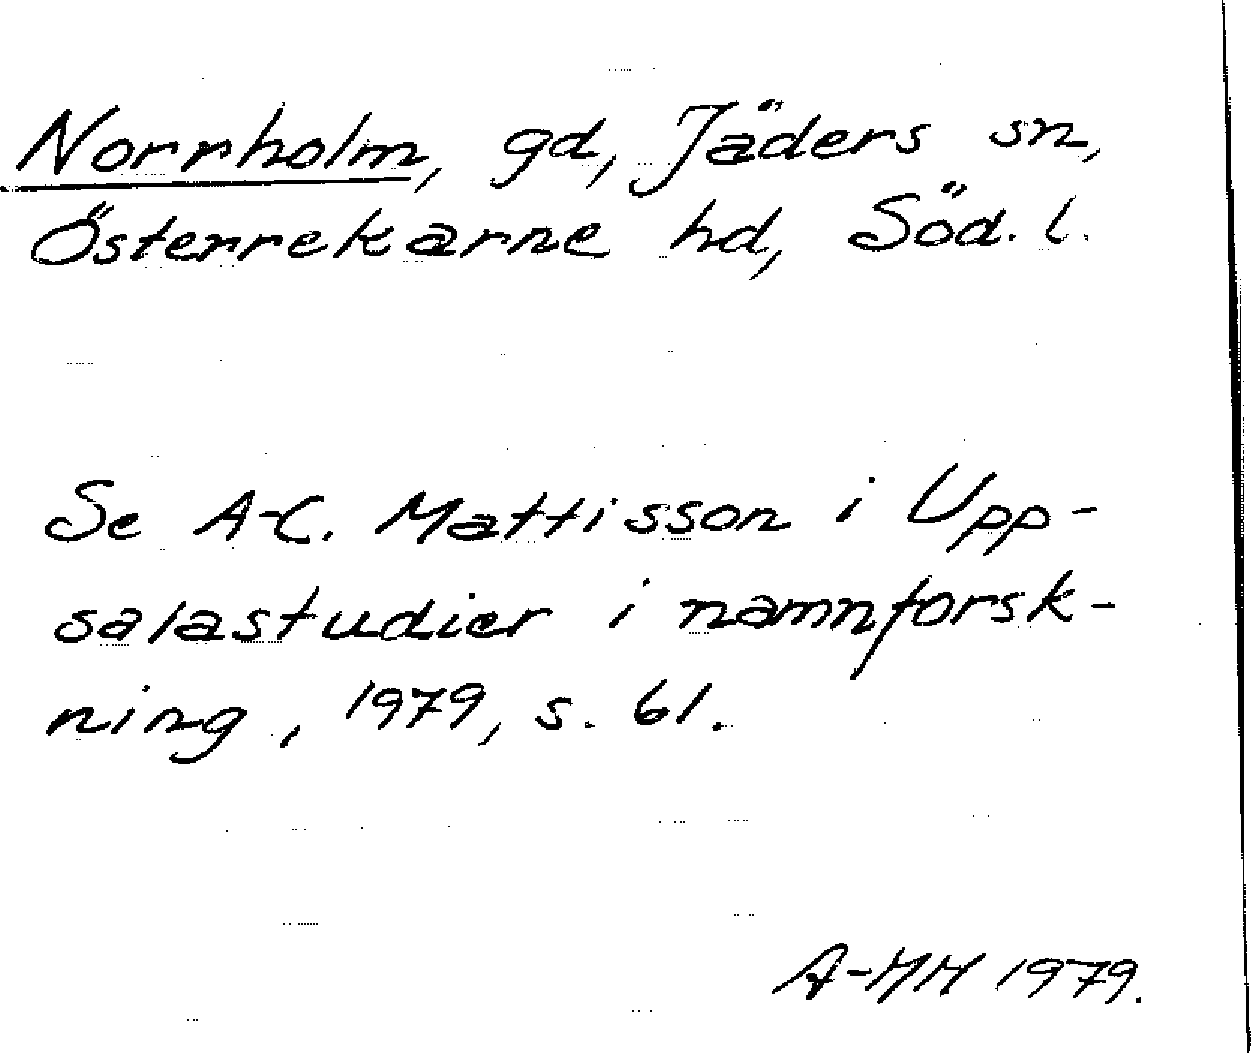 Norrholm, gd, Jäders sn,
Österrekarne hd, Söd. l.
Se A-C. Mattisson i Upp-
salastudier i namnforsk-
ning, 1979, s. 61.
A-MM 1979.